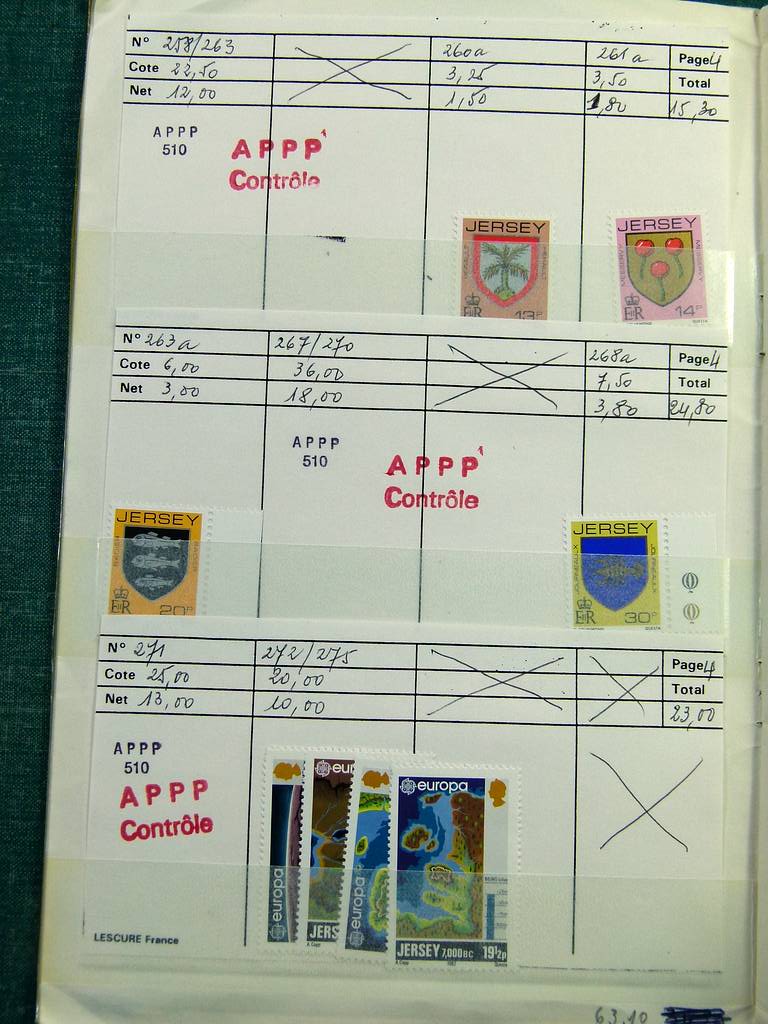 N° 258/263 260a 261a Page 4
Cote 22,50 3,25 3,50 Total
Net 12,00 1,50 1,80 15,30
APPP
510
APPP
Contrôle
JERSEY
13P
JERSEY
14P
N° 263a 267/270 268a Page 4
Cote 6,00 36,00 7,50 Total
Net 3,00 18,00 3,80 24,80
APPP
510
APPP
Contrôle
JERSEY
20P
JERSEY
JOURNEAULX JOURNEAULX
30P
N° 271 272/275 Page 4
Cote 25,00 20,00 Total
Net 13,00 10,00 23,00
APPP
510
APPP
Contrôle
europa
eur
JERS
europa
europa
JERSEY 7,000 BC 19½p
LESCURE France
63,10